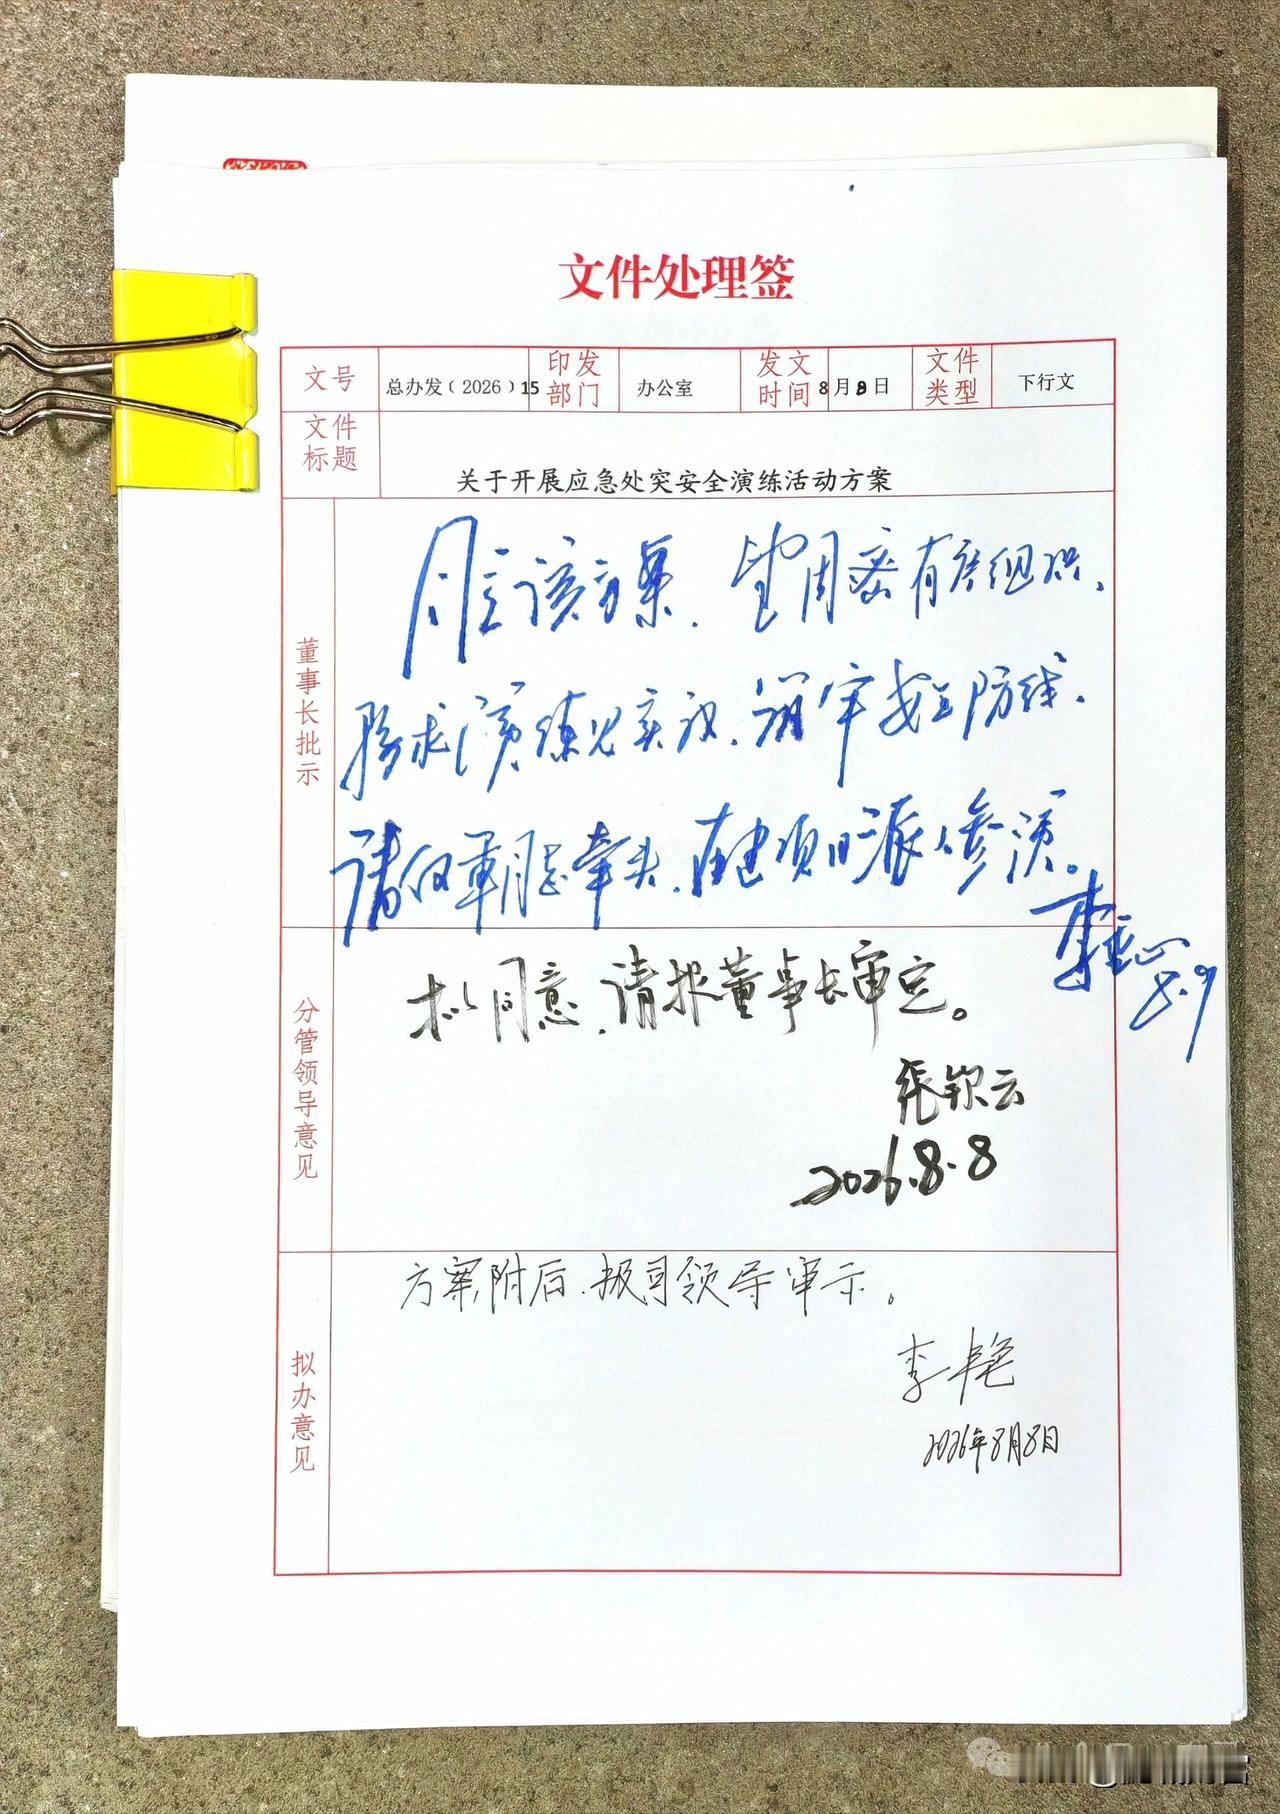 文件处理签
文号 总办发（2026）15 印发部门 办公室 发文时间 8月9日 文件类型 下行文
文件标题 关于开展应急处突安全演练活动方案
董事长批示
同意该方案，望周密有序组织、
务求演练见实效，筑牢安全防线，
请 同志牵头，在建项目派人参演。
李 8.9
分管领导意见
拟同意，请报董事长审定。
张钦云
2026.8.8
拟办意见
方案附后，报司领导审示。
李艳
2026年8月8日